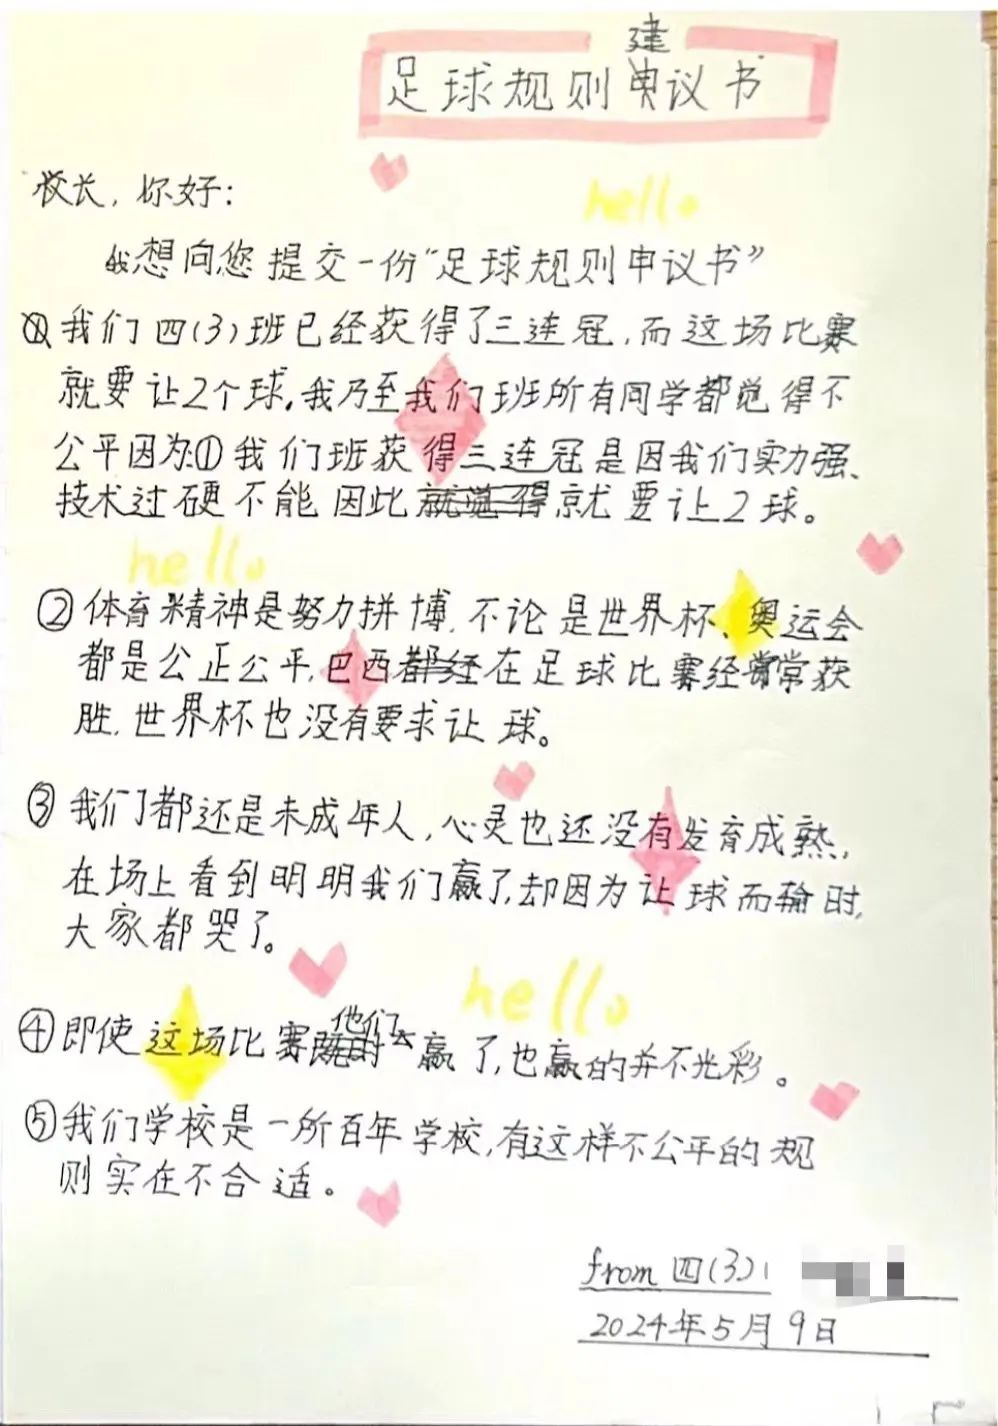 足球规则建议书
校长，你好：
hello
我想向您提交一份“足球规则申议书”
我们四(3)班已经获得了三连冠，而这场比赛
就要让2个球。我乃至我们班所有同学都觉得不
公平因为:①我们班获得三连冠是因我们实力强、
技术过硬不能因此就要让2球。
hello
②体育精神是努力拼博，不论是世界杯、奥运会
都是公正公平，巴西在足球比赛经常获
胜，世界杯也没有要求让球。
③我们都还是未成年人，心灵也还没有发育成熟，
在场上看到明明我们赢了，却因为让球而输时，
大家都哭了。
hello
④即使这场比赛他们赢了，也赢的并不光彩。
⑤我们学校是一所百年学校，有这样不公平的规
则实在不合适。
from 四(3)
2024年5月9日